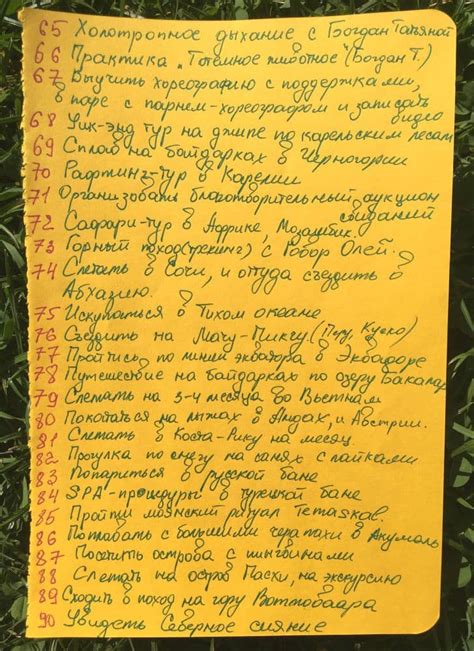 65 Холотропное дыхание с Богдан Татьяной
66 Практика "Тотемное животное" (Богдан Т.)
67 Выучить хореографию с поддержками,
в паре с парнем-хореографом и записать
видео
68 Уик-энд тур на джипе по карельским лесам
69 Сплав на байдарках в Черногории
70 Рафтинг-тур в Карелии
71 Организовать благотворительный аукцион
свиданий
72 Сафари-тур в Африке, Мозамбик.
73 Горный поход (трекинг) с Олей.
74 Слетать в Сочи, и оттуда съездить в
Абхазию.
75 Искупаться в Тихом океане
76 Съездить на Мачу-Пикчу. (Перу, Куско)
77 Пройтись по линии экватора в Эквадоре
78 Путешествие на байдарках по озеру
79 Слетать на 3-4 месяца во Вьетнам
80 Покататься на лыжах в Андах, и Австрии.
81 Слетать в Коста-Рику на месяц.
82 Прогулка по снегу на санях с хайками
83 Попариться в русской бане
84 SPA-процедуры в турецкой бане
85 Пройти маянский ритуал Temaskal.
86 Поплавать с большими черепахи в Акумаль
87 Посетить острова с пингвинами
88 Слетать на остров Пасхи, на экскурсию
89 Сходить в поход на гору Воттоваара
90 Увидеть Северное сияние